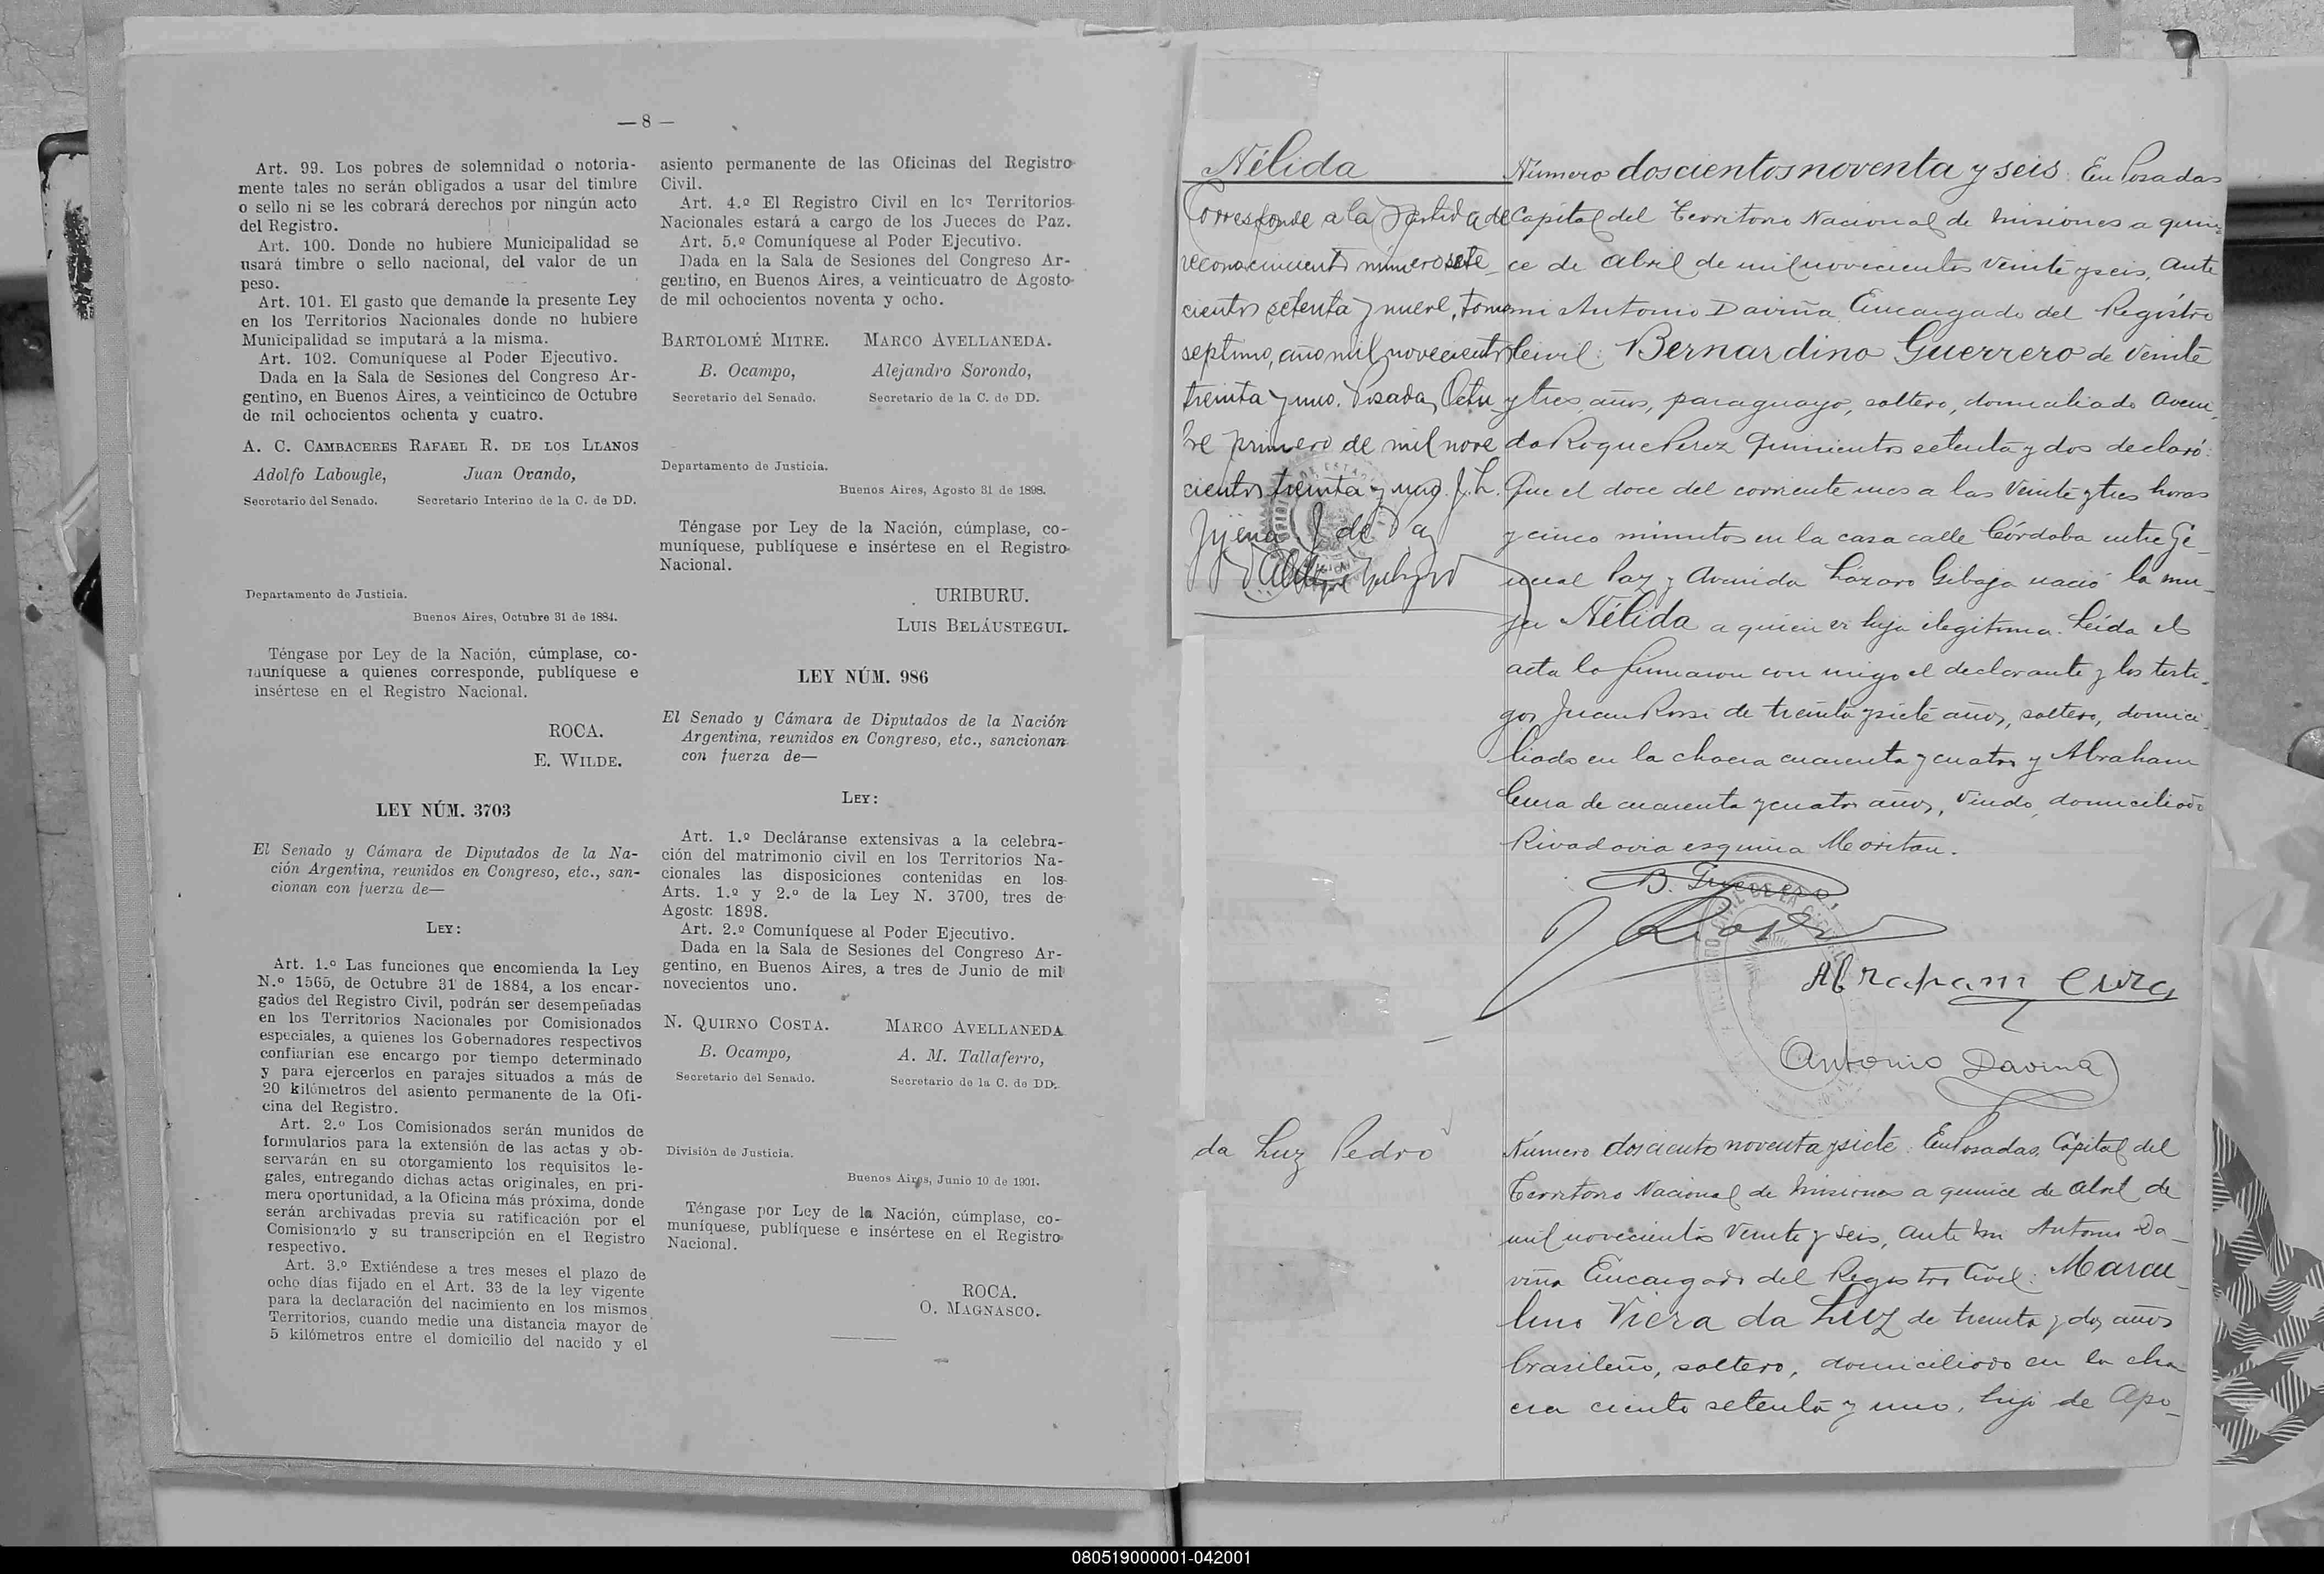 — 8 —
Art. 99. Los pobres de solemnidad o notoria-
mente tales no serán obligados a usar del timbre
o sello ni se les cobrará derechos por ningún acto
del Registro.
Art. 100. Donde no hubiere Municipalidad se
usará timbre o sello nacional, del valor de un
peso.
Art. 101. El gasto que demande la presente Ley
en los Territorios Nacionales donde no hubiere
Municipalidad se imputará a la misma.
Art. 102. Comuníquese al Poder Ejecutivo.
Dada en la Sala de Sesiones del Congreso Ar-
gentino, en Buenos Aires, a veinticinco de Octubre
de mil ochocientos ochenta y cuatro.
A. C. CAMBACERES RAFAEL R. DE LOS LLANOS
Adolfo Labougle, Juan Ovando,
Secretario del Senado. Secretario Interino de la C. de DD.
Departamento de Justicia.
Buenos Aires, Octubre 31 de 1884.
Téngase por Ley de la Nación, cúmplase, co-
muníquese a quienes corresponde, publíquese e
insértese en el Registro Nacional.
ROCA.
E. WILDE.
LEY NÚM. 3703
El Senado y Cámara de Diputados de la Na-
ción Argentina, reunidos en Congreso, etc., san-
cionan con fuerza de—
LEY:
Art. 1.º Las funciones que encomienda la Ley
N.º 1565, de Octubre 31 de 1884, a los encar-
gados del Registro Civil, podrán ser desempeñadas
en los Territorios Nacionales por Comisionados
especiales, a quienes los Gobernadores respectivos
confiarían ese encargo por tiempo determinado
y para ejercerlos en parajes situados a más de
20 kilómetros del asiento permanente de la Ofi-
cina del Registro.
Art. 2.º Los Comisionados serán munidos de
formularios para la extensión de las actas y ob-
servarán en su otorgamiento los requisitos le-
gales, entregando dichas actas originales, en pri-
mera oportunidad, a la Oficina más próxima, donde
serán archivadas previa su ratificación por el
Comisionado y su transcripción en el Registro
respectivo.
Art. 3.º Extiéndese a tres meses el plazo de
ocho días fijado en el Art. 33 de la ley vigente
para la declaración del nacimiento en los mismos
Territorios, cuando medie una distancia mayor de
5 kilómetros entre el domicilio del nacido y el
asiento permanente de las Oficinas del Registro
Civil.
Art. 4.º El Registro Civil en los Territorios
Nacionales estará a cargo de los Jueces de Paz.
Art. 5.º Comuníquese al Poder Ejecutivo.
Dada en la Sala de Sesiones del Congreso Ar-
gentino, en Buenos Aires, a veinticuatro de Agosto
de mil ochocientos noventa y ocho.
BARTOLOMÉ MITRE. MARCO AVELLANEDA.
B. Ocampo, Alejandro Sorondo,
Secretario del Senado. Secretario de la C. de DD.
Departamento de Justicia.
Buenos Aires, Agosto 31 de 1898.
Téngase por Ley de la Nación, cúmplase, co-
muníquese, publíquese e insértese en el Registro
Nacional.
URIBURU.
LUIS BELÁUSTEGUI.
LEY NÚM. 986
El Senado y Cámara de Diputados de la Nación
Argentina, reunidos en Congreso, etc., sancionan
con fuerza de—
LEY:
Art. 1.º Decláranse extensivas a la celebra-
ción del matrimonio civil en los Territorios Na-
cionales las disposiciones contenidas en los
Arts. 1.º y 2.º de la Ley N. 3700, tres de
Agosto 1898.
Art. 2.º Comuníquese al Poder Ejecutivo.
Dada en la Sala de Sesiones del Congreso Ar-
gentino, en Buenos Aires, a tres de Junio de mil
novecientos uno.
N. QUIRNO COSTA. MARCO AVELLANEDA
B. Ocampo, A. M. Tallaferro,
Secretario del Senado. Secretario de la C. de DD.
División de Justicia.
Buenos Aires, Junio 10 de 1901.
Téngase por Ley de la Nación, cúmplase, co-
muníquese, publíquese e insértese en el Registro
Nacional.
ROCA.
O. MAGNASCO.
Nélida
Corresponde a la Partida de
reconocimiento número sete-
cientos setenta y nueve, tomo
septimo, año mil novecientos
treinta y uno. Posadas, Octu-
bre primero de mil nove
cientos treinta y uno. J. L.
J. de Paz
Número doscientos noventa y seis. En Posadas
Capital del Territorio Nacional de Misiones a quin-
ce de Abril de mil novecientos veinte y seis, Ante
mi Antonio Daviña Encargado del Registro
Civil: Bernardino Guerrero de veinte
y tres años, paraguayo, soltero, domiciliado Aveni-
da Roque Perez quinientos setenta y dos declaró:
Que el doce del corriente mes a las veinte y tres horas
y cinco minutos en la casa calle Córdoba entre Ge-
neral Paz y Avenida Lázaro Gibaja nació la mu-
jer Nélida a quien es hija ilegitima. Leída el
acta la firmaron con migo el declarante y los testi-
gos Juan Rossi de treinta y siete años, soltero, domici-
liado en la chacra cuarenta y cuatro y Abraham
Cura de cuarenta y cuatro años, viudo, domiciliado
Rivadavia esquina Moritan.
B. Guerrero
Abraham Cura
Antonio Daviña
da Luz Pedro
Número doscientos noventa y siete. En Posadas, Capital del
Territorio Nacional de Misiones a quince de Abril de
mil novecientos veinte y seis, ante mi Antonio Da-
viña Encargado del Registro Civil: Marce-
lino Viera da Luz de treinta y dos años
brasileño, soltero, domiciliado en la cha
cra ciento setenta y uno, hijo de Apo-
080519000001-042001